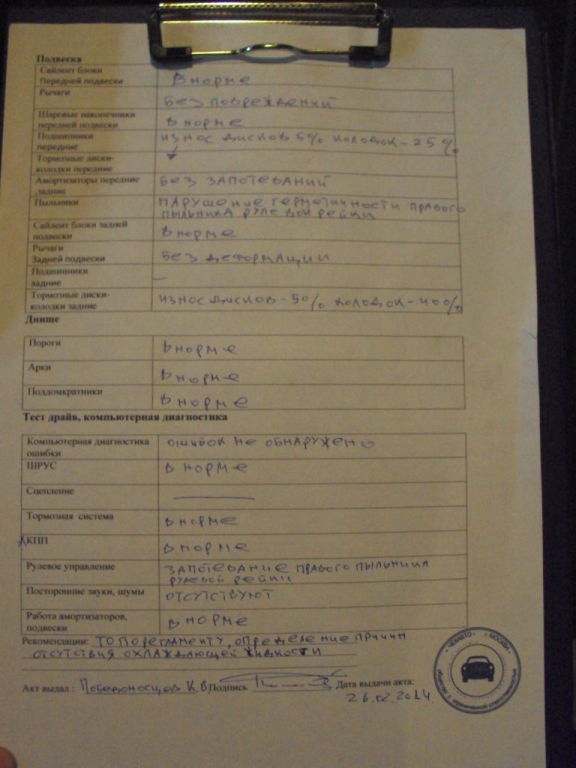 Подвеска
Сайлент блоки
Передней подвески
В норме
Рычаги
Без повреждений
Шаровые наконечники
передней подвески
В норме
Подшипники
передние
износ дисков 5% колодок - 25%
Тормозные диски-
колодки передние
Амортизаторы передние
задние
Без запотеваний
Пыльники
Нарушение герметичности правого
пыльника рулевой рейки
Сайлент блоки задней
подвески
В норме
Рычаги
Задней подвески
Без деформации
Подшипники
задние
–
Тормозные диски-
колодки задние
износ дисков - 5% колодок - 40%
Днище
Пороги
В норме
Арки
В норме
Поддомкратники
В норме
Тест драйв, компьютерная диагностика
Компьютерная диагностика
ошибки
ошибок не обнаружено
ШРУС
в норме
Сцепление
Тормозная система
в норме
КПП
в норме
Рулевое управление
запотевание правого пыльника
рулевой рейки
Посторонние звуки, шумы
отсутствуют
Работа амортизаторов,
подвески
в норме
Рекомендации: ТО по регламенту, определение причин
отсутствия охлаждающей жидкости
Акт выдал : Победоносцев К.В. Подпись Дата выдачи акта:
26.02.2014
МОСКВА